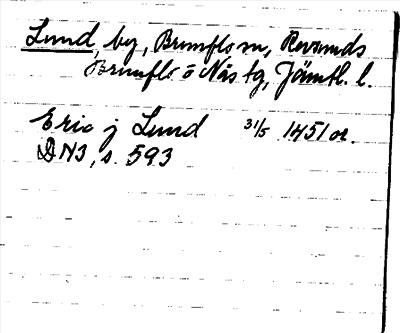 Lund, by, Brunflo sn, Revsunds
Brunflo o Näs tg, Jämtl. l.
Eric j Lund 31/5 1451 or.
DN3, s. 593